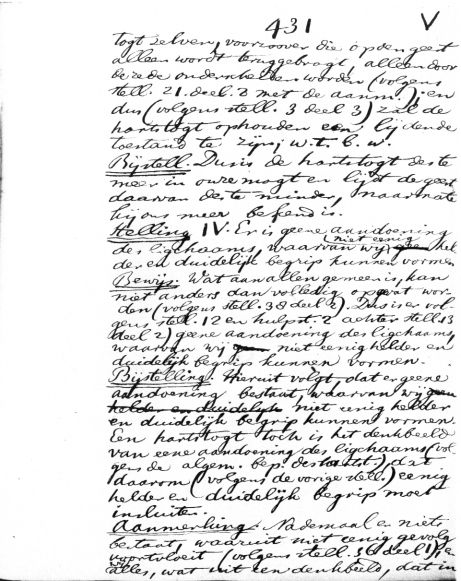 431 V
togt zelven, voorzoover die op den geest
alleen wordt teruggebragt, alleen door
de rede onderscheiden worden (volgens
stell. 21. deel. 2 met de aanm.); en
dus (volgens stell. 3 deel 3) zal de
hartstogt ophouden een lijdende
toestand te zijn; w. t. b. w.
Bijstell. Dus is de hartstogt des te
meer in onze magt en lijdt de geest
daarvan des te minder, naarmate
hij ons meer bekend is.
Stelling IV. Er is geene aandoening
des ligchaams, waarvan wij geen niet eenig hel
der en duidelijk begrip kunnen vormen
Bewijs. Wat aan allen gemeen is, kan
niet anders dan volledig opgevat wor-
den (volgens stell. 38 deel 2) Dus is er vol-
gens stell. 12 en hulpst. 2 achter stell. 13
deel 2) geene aandoening des ligchaams,
waarvan wij niet eenig helder en
duidelijk begrip kunnen vormen.
Bijstelling. Hieruit volgt, dat er geene
aandoening bestaat, waarvan wij geen
helder en duidelijk niet eenig helder
en duidelijk begrip kunnen vormen.
Een hartstogt toch is het denkbeeld
van eene aandoening des ligchaams (vol-
gens de algem. bep. der hartst.), dat
daarom (volgens de vorige stell.) eenig
helder en duidelijk begrip moet
insluiten.
Aanmerking. Nademaal er niets
bestaat, waaruit niet eenig gevolg
voortvloeit (volgens stell. 36 deel 1), en
wij alles, wat uit een denkbeeld, dat in